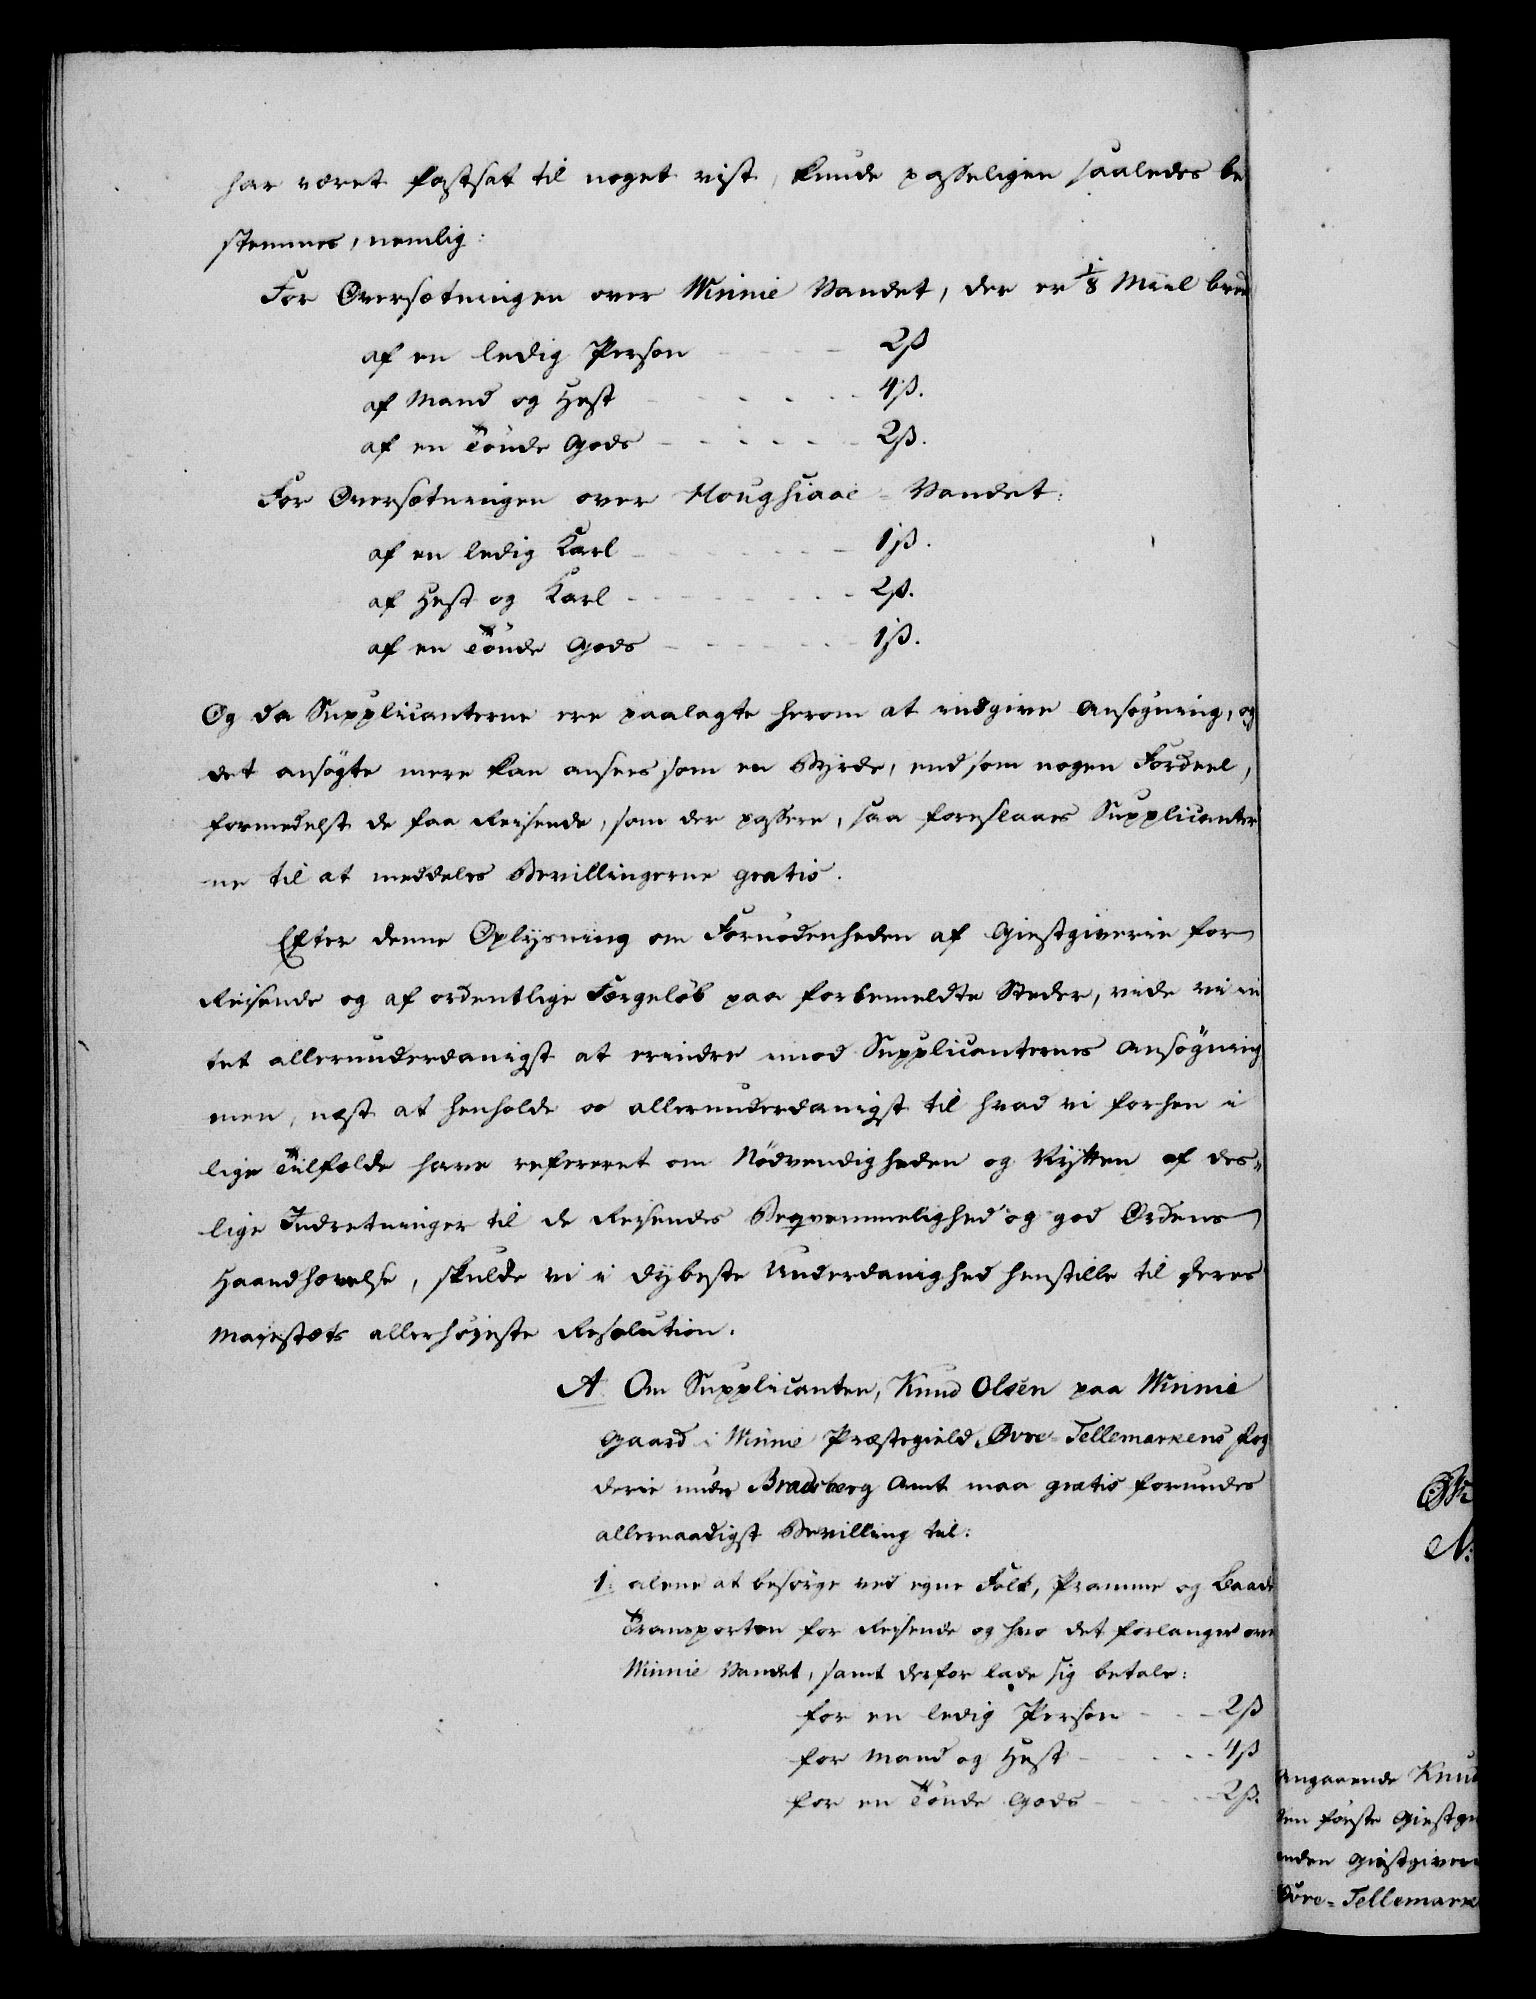 har været fastsat til noget vist, kunde passeligen saaledes be
stemmes, nemlig:
For Oversætningen over Winie Vandet, der er 1/8 Miil bred
af en ledig Person - - - - 2ß
af Mand og Hest - - - - - 4ß.
af en Tönde Gods - - - - - 2ß.
For Oversætningen over Hougsiaae-Vandet:
af en ledig Karl - - - - - 1ß.
af Hest og Karl - - - - - 2ß.
af en Tönde Gods - - - - - 1ß.
Og da Supplicanterne ere paalagte herom at indgive Ansøgning, og
det ansögte mere kan ansees som en Byrde, end som nogen Fordeel,
formedelst de faa Reisende, som der passere, saa foreslaaes Supplicanter
ne til at meddeles Bevillingerne gratis.
Efter denne Oplysning om Fornödenheden af Giestgiverie for
Reisende og af ordentlige Færgelöb paa forbemeldte Steder, vide vi in
tet allerunderdanigst at erindre imod Supplicanternes Ansögning
men, næst at henholde os allerunderdanigst til hvad vi forhen i
lige Tilfælde have refereret om Nödvendigheden og Nytten af des-
lige Indretninger til de Reisendes Beqvemmelighed og god Ordens
Haandhævelse, skulde vi i dybeste Underdanighed henstille til Deres
Majestæts allerhöjeste Resolution.
A. Om Supplicanten, Knud Olsen paa Winie
Gaard i Winie Præstegield, Øvre-Tellemarkens Fog
derie under Bradsberg Amt maa gratis forundes
allernaadigst Bevilling til:
1. alene at besörge ved egne Folk, Pramme og Baade
Transporten for Reisende og hvo det forlanger over
Winie Vandet, samt derfor lade sig betale:
for en ledig Person - - - 2ß
for Mand og Hest - - - - 4ß
for en Tönde Gods - - - - 2ß.
N:
Angaaende Knud
den förste Giestgi
anden Giestgiver
Övre-Tellemarke